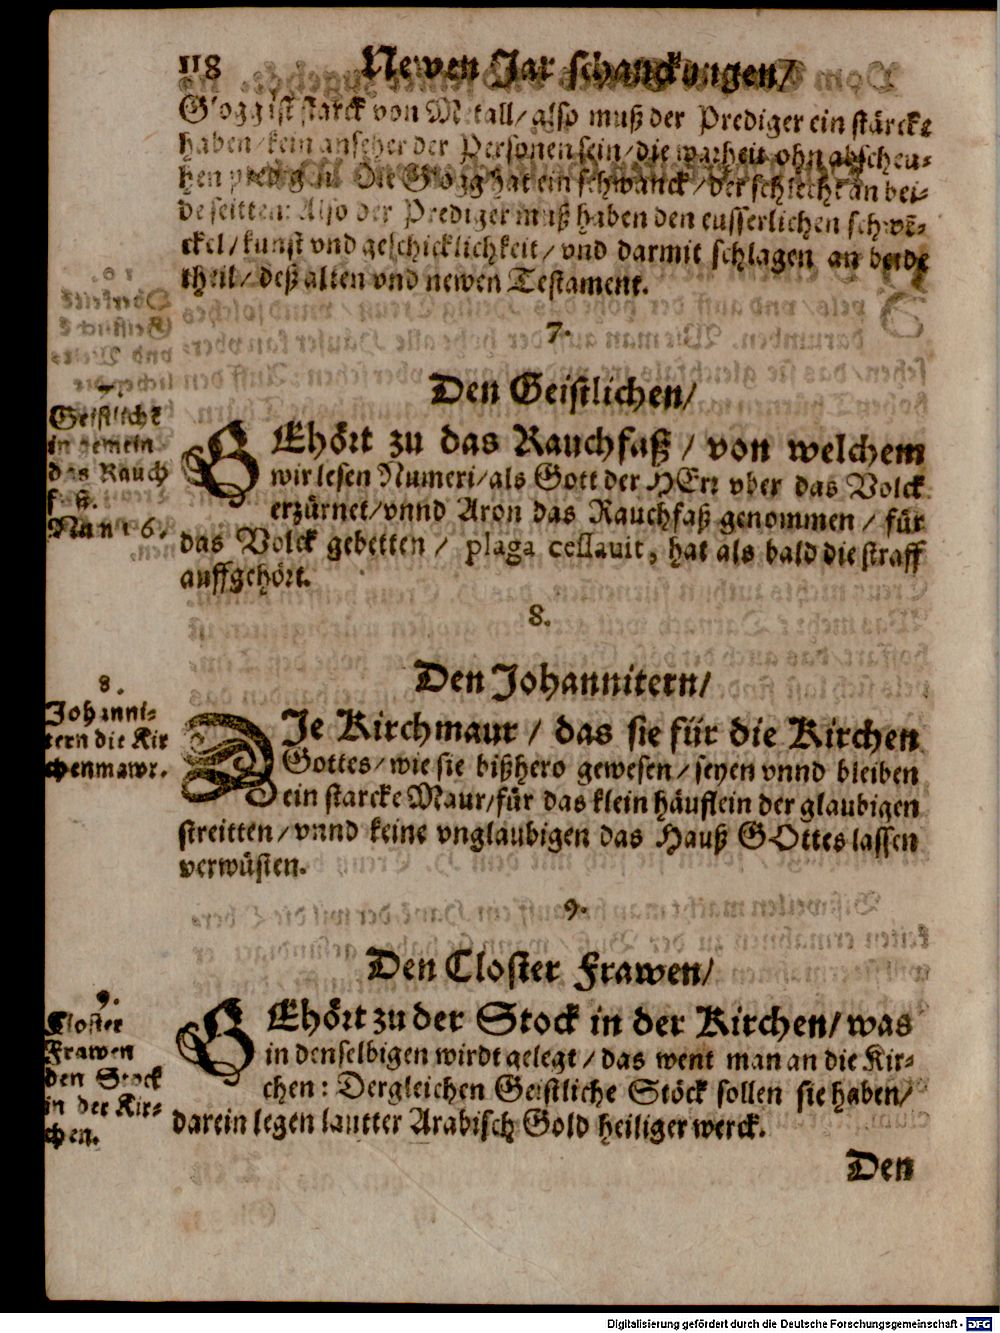 118 Newen Jar schanckungen/
Glogg ist starck von Metall/ also muß der Prediger ein stärcke
haben/ kein anseher der Personen sein/ die warheit ohn abscheu-
hen predigen. Die Glogg hat ein schwanck/ der schlecht an bei-
de seitten: Also der Prediger muß haben den eusserlichen schwē-
ckel/ kunst vnd geschicklichkeit/ vnd darmit schlagen an beede
theil/ deß alten vnd newen Testament.
7.
Den Geistlichen/
7.
Geistliche
in gemein
das Rauch
faß.
Num 16.
GEhört zu das Rauchfaß/ von welchem
wir lesen Numeri/ als Gott der HErr vber das Volck
erzürnet/ vnnd Aron das Rauchfaß genommen/ für
das Volck gebetten/ plaga cessavit, hat als bald die straff
auffgehört.
8.
Den Johannitern/
8.
Johanni-
tern die Kir
chenmawr.
DIe Kirchmaur/ das sie für die Kirchen
Gottes/ wie sie bißhero gewesen/ seyen vnnd bleiben
ein starcke Maur/ für das klein häuflein der glaubigen
streitten/ vnnd keine vnglaubigen das Hauß GOttes lassen
verwüsten.
9.
Den Closter Frawen/
9.
Closter
Frawen
den Stock
in der Kir-
chen.
GEhört zu der Stock in der Kirchen/ was
in denselbigen wirdt gelegt/ das went man an die Kir-
chen: Dergleichen Geistliche Stöck sollen sie haben/
darein legen lautter Arabisch Gold heiliger werck.
Den
Digitalisierung gefördert durch die Deutsche Forschungsgemeinschaft - DFG